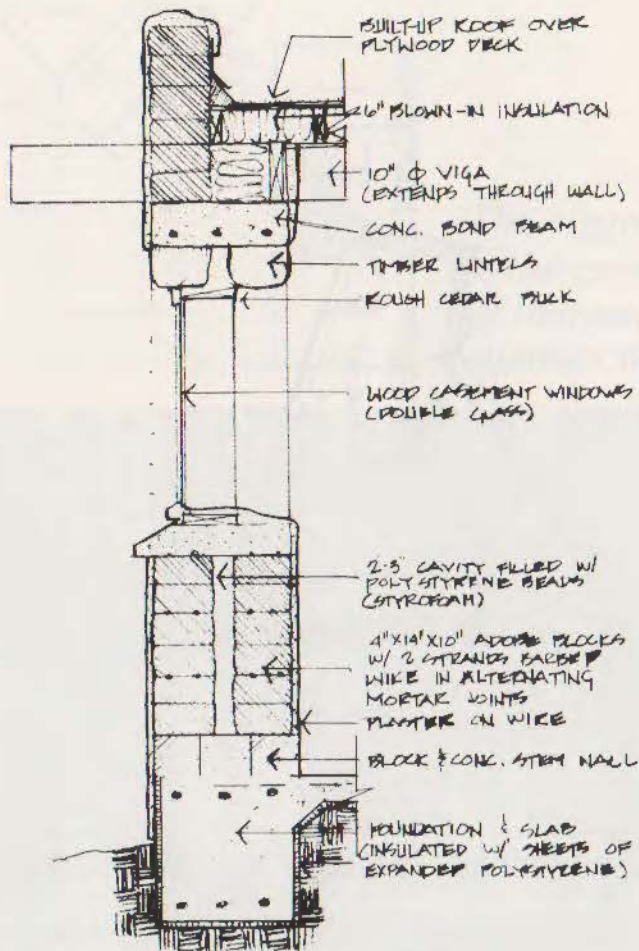 BUILT-UP ROOF OVER
PLYWOOD DECK
6" BLOWN-IN INSULATION
10" φ VIGA
(EXTENDS THROUGH WALL)
CONC. BOND BEAM
TIMBER LINTELS
ROUGH CEDAR BUCK
WOOD CASEMENT WINDOWS
(DOUBLE GLASS)
2-3" CAVITY FILLED W/
POLYSTYRENE BEADS
(STYROFOAM)
4"X14"X10" ADOBE BLOCKS
W/ 2 STRANDS BARBED
WIRE IN ALTERNATING
MORTAR JOINTS
PLASTER ON WIRE
BLOCK & CONC. STEM WALL
FOUNDATION & SLAB
(INSULATED W/ SHEETS OF
EXPANDED POLYSTYRENE)